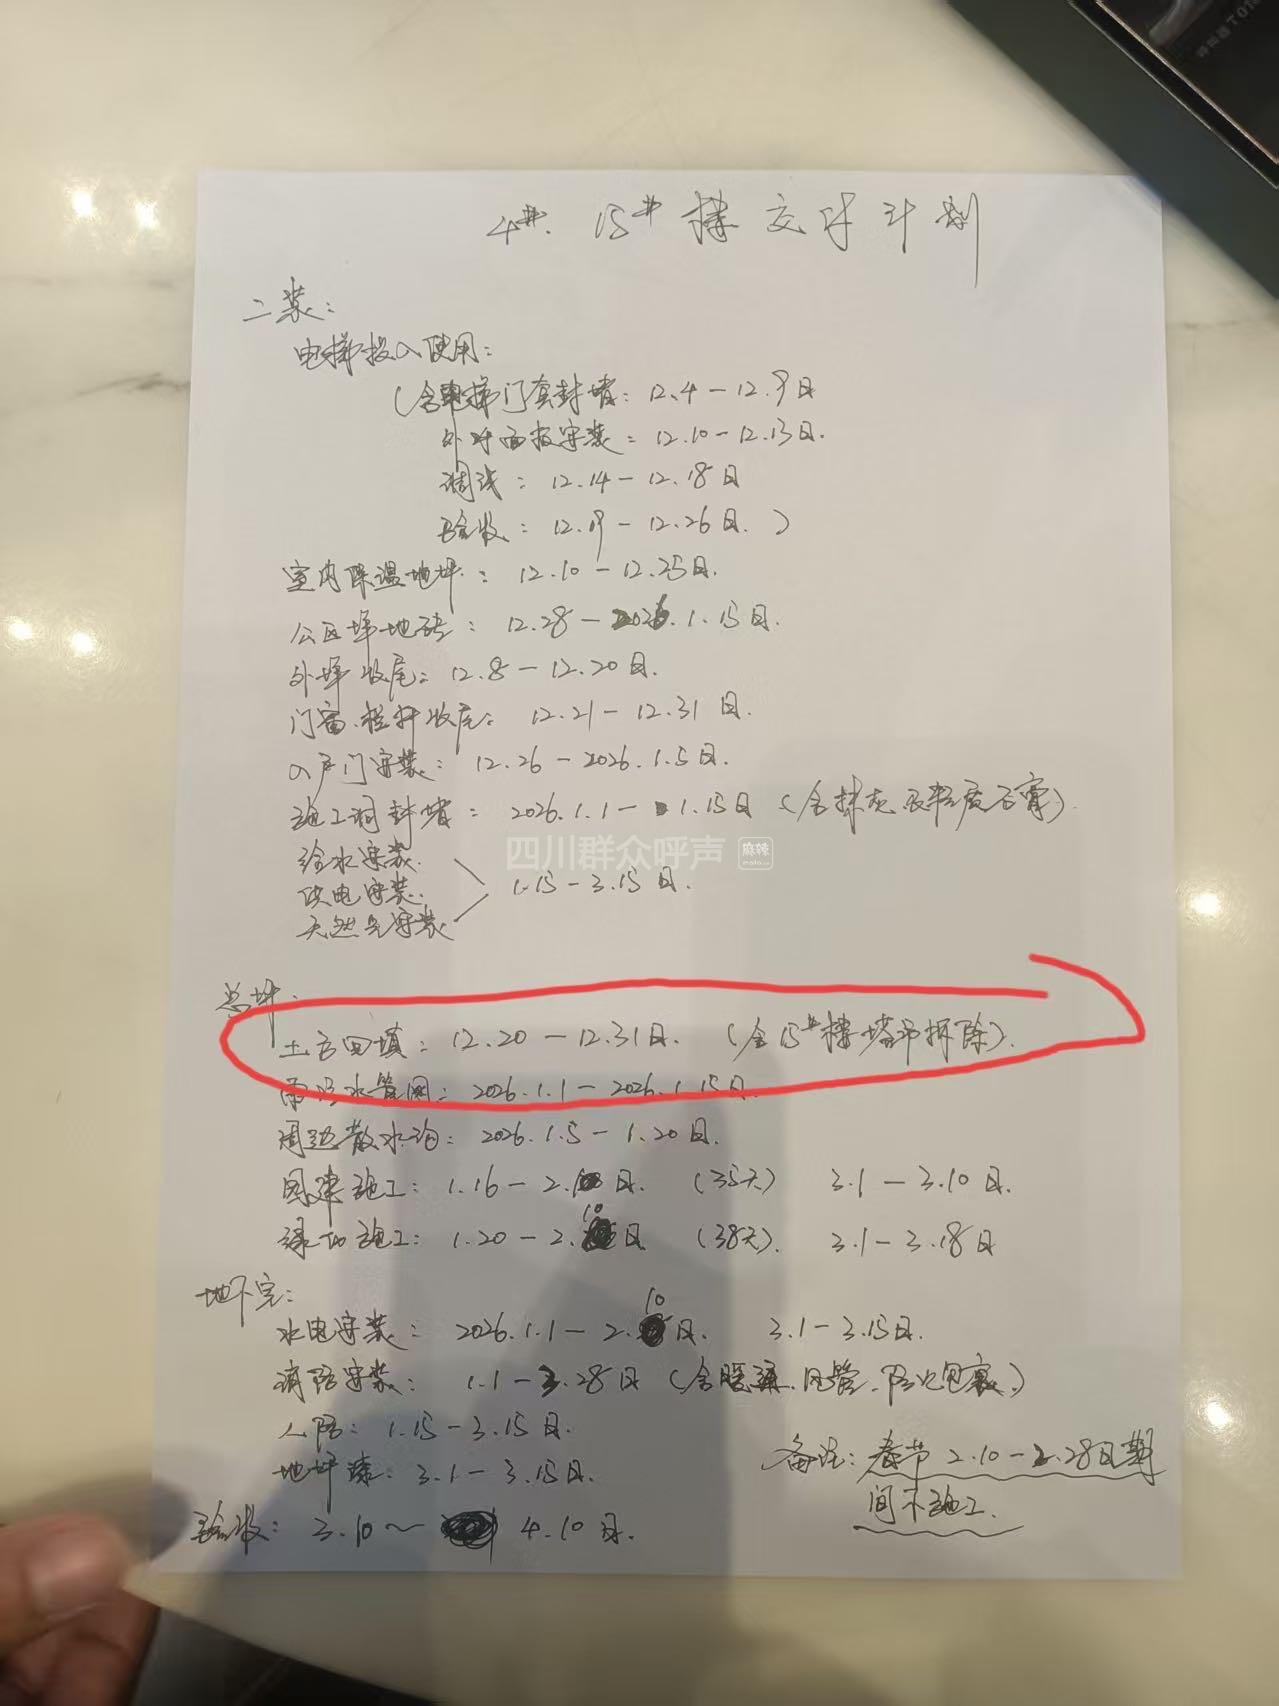 4#、15#楼交付计划
二装：
电梯投入使用：
（含电梯门套封堵：12.4－12.9日
外呼面板安装：12.10－12.13日.
调试：12.14－12.18日
验收：12.19－12.26日.）
室内保温地坪：12.10－12.25日.
公区墙地砖：12.28－2026.1.15日.
外墙收尾：12.8－12.20日.
门窗.栏杆收尾：12.21－12.31日.
入户门安装：12.26－2026.1.5日.
施工洞封堵：2026.1.1－1.15日（含抹灰及石膏）.
给水安装.
供电安装. 1.15－3.15日.
天然气安装
四川群众呼声 麻辣
总坪：
土方回填：12.20－12.31日.（含15#楼塔吊拆除）.
雨污水管网：2026.1.1－2026.1.15日.
周边散水沟：2026.1.5－1.20日.
园建施工：1.16－2.10日.（35天） 3.1－3.10日.
绿化施工：1.20－2.10日（38天）. 3.1－3.18日
地下室：
水电安装：2026.1.1－2.10日. 3.1－3.15日.
消防安装：1.1－3.28日（含暖通.风管.防火包裹.）
人防：1.15－3.15日.
地坪漆：3.1－3.15日.
备注：春节2.10－2.28日期
间不施工.
验收：3.10～4.10日.